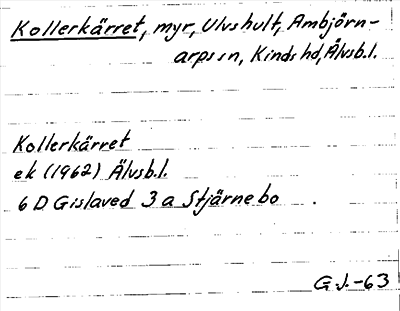 Kollerkärret, myr, Ulvshult, Ambjörn-
arps sn, Kinds hd, Älvsb.l.
Kollerkärret
ek (1962) Älvsb.l.
6 D Gislaved 3 a Stjärnebo
G.J.-63